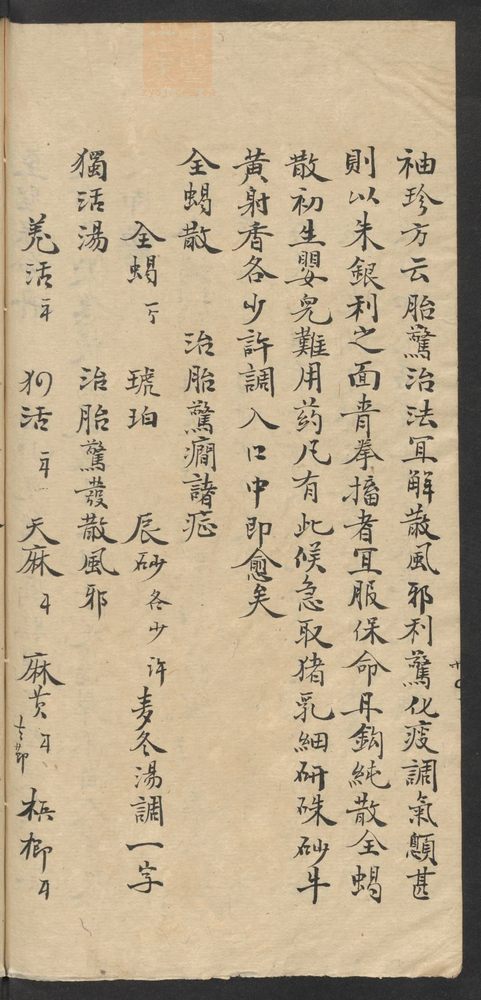 袖珍方云胎驚治法宜解散風邪利驚化痰調氣顋甚
則以朱銀利之面青拳搐者宜服保命丹鈎純散全蝎
散初生嬰兒難用药凡有此候急取猪乳細研硃砂牛
黄射香各少許調入口中即愈矣
全蝎散 治胎驚癎諸症
全蝎 琥珀 辰砂各少許麦冬湯調一字
獨活湯 治胎驚發散風邪
羗活 犭活 天麻 麻黄去節 梹榔